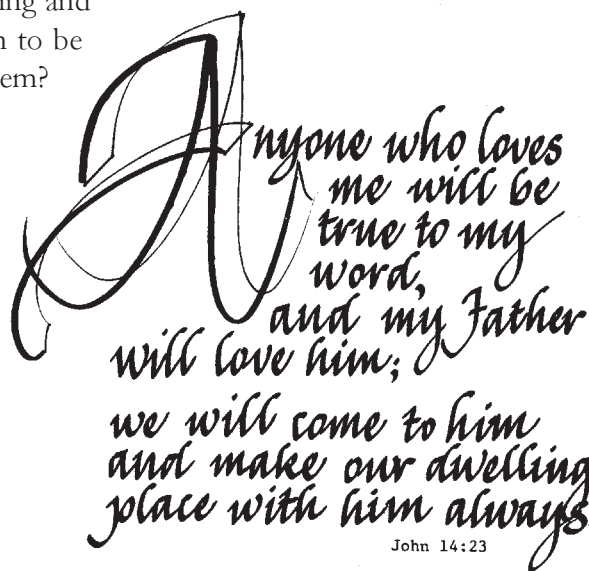 ing and
n to be
em?
Anyone who loves
me will be
true to my
word,
and my Father
will love him;
we will come to him
and make our dwelling
place with him always
John 14:23